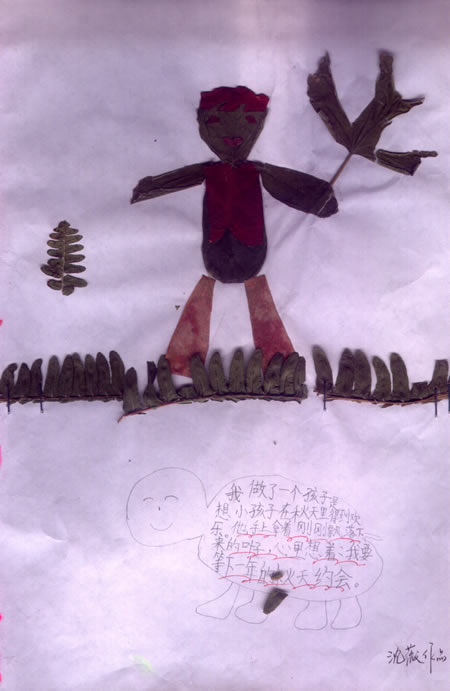 我做了一个孩子是
想小孩子在秋天里得到欢
乐。他手上拿着刚刚飘落下
来的叶子，心里想着：我要
等下一年的秋天约会。
沈薇作品